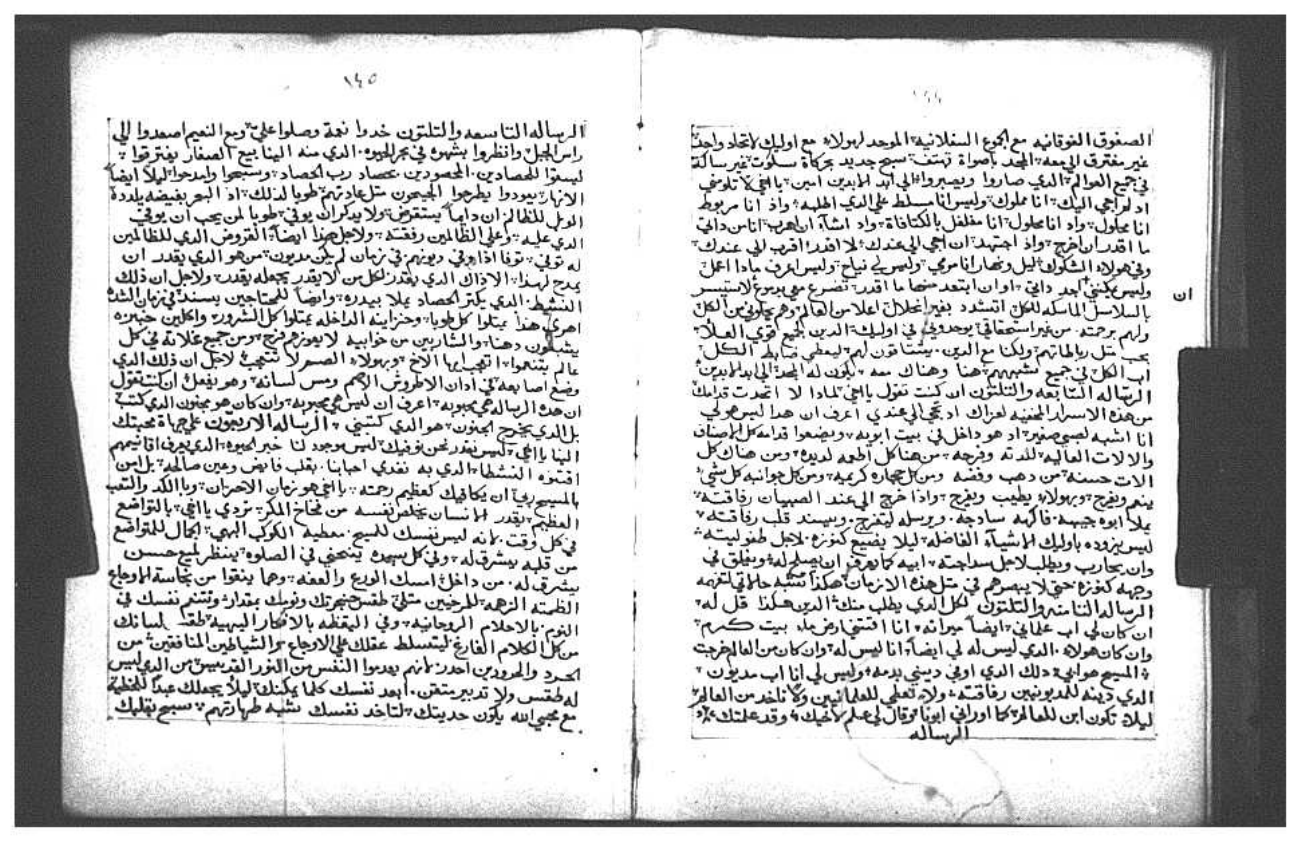 ١٤٤
الصفوف الفوقانيه مع الجموع السفلانيه الموحد لهولاء مع اوليك لاتحاد واحد
غير مفترق الي معه المجد باصواة تهتف سبح جديد بحركاة سكوت غير ساكته
في جميع العوالم الدي صاروا ويصيروا الي ابد الابدين امين يااخي لا تلومني
اد لم اجي اليك انا مملوك وليس انا مسلط علي الدي اطلبه واد انا مربوط
انا محلول واد انا محلول انا مغلغل بالكتافاة واد اشآ ان اهرب انا من داتي
ما اقدر ان اخرج واد اجتهد ان اجي الي عندك لا اقدر اقرب الي عندك
وفي هولاء الشكوك ليل ونهار انا مرمي وليس لي نياح وليس اعرف مادا اعمل
وليس يمكنني اجد داتي او ان ابتعد منها ما اقدر تضرع عني بدموع لاستيسر
ان
بالسلاسل الماسكه للكل اتشدد بغير انحلال اعلا من العالم وهم يحملوني من الكل
ولهم برحمته من غير استحقاقي يوحدوني في اوليك الدين لجميع قوي العلا
بحب مثل رباطاتهم ولكنا مع الدين يشتاقون لهم ليعطي ضابط الكل
اب الكل في جميع تشبههم هنا وهناك معه يكون له المجد الي ابد الابدين
الرساله السابعه والتلتون ان كنت تقول يااخي لمادا لا اتحدت قدامك
من هذه الاسرار المخفيه لعزاك اد تجي الي عندي اعرف ان هدا ليس هو لي
انا اشبه لصبي صغير اد هو داخل في بيت ابويه ويضعوا قدامه كل الاصناف
والالات العاليه للدته وفرحه من هنا كل اطعمه لديده ومن هناك كل
الات حسنه من دهب وفضه ومن كل حجاره كريمه ومن كل جوانبه كل شي
ينعم ويفرح وبهولاء يطيب ويفرح واذا خرج الي عند الصبيان رفاقته
يملا ابوه جيبه فاكهه سادجه ويرسله ليتفرج ويسند قلب رفاقته
ليس يزوده باوليك الاشيآء الفاضله ليلا يضيع كنوزه لاجل طفوليته
وان يحارب ويطلب لاجل سداجته ابيه كما يعرف ان يصلح له ويغلق في
وجهه كنوزه حتي لا يبصرهم في مثل هذه الازمان هكذا تشبه حالاتي لتفهمه
الرساله التامنه والتلتون لكل الدي يطلب منك الدين هكذا قل له
ان كان لي اب علماني ايضاً ميراته انا اقتني ارض ماء بيت كرم
وان كان هولاء الدي ليس له لي ايضاً انا ليس له وان كان من العالم خرجت
المسيح هو ابي دلك الدي اوفي ديني بدمه وليس لي انا اب مديون
الدي دينه للمديونين رفاقته ولاء تعطي للعلمانيين ولا تاخد من العالم
ليلا تكون ابن للعالم كما اوراني ابونا وقال لي علم لاخيك وقد علمتك
الرساله
١٤٥
الرساله التاسعه والتلتون خدوا نعمة وصلوا علي ومع النعيم اصعدوا الي
راس الجبل وانظروا بشهوه في بحر الحيوه الدي منه الينا بيع الصغار يفترقوا
ليسقوا للحصادين المحصودين بحصاد رب الحصاد وسبحوا وامدحوا ليلا ايضاً
الانهار يعودوا يطرحوا الجيحون مثل عادتهم طوبا لدلك اد البحر بفيضه يلددة
الويل للظالم ان دايما يستقرض ولا يدكر ان يوفي طوبا لمن يحب ان يوفي
الدي عليه وعلي الظالمين رفقته ولاجل هذا ايضاً القروض الدي للظالمين
له توفي توفا اذا وفي ديونهم في زمان لم يكن مديون من هو الدي يقدر ان
يمدح لهذا الادراك الدي يقدر لكل من لا يقدر يجعله يقدر ولاجل ان دلك
النشيط الدي يكتر الحصاد يملا بيدره وايضا للمحتاجين يسند في زمان الشده
اهري هذا يمتلوا كل طوبا وخزاينه الداخله يمتلوا كل الشرور واكلين خبزه
يشبعون دهنا والشاربين من خوابيه لا يعوزهم فرح ومن جميع غلاته في كل
عالم يتنعموا اتعجب ايها الاخ وبهولاء الصم لا تتعجب لاجل ان ذلك الدي
وضع اصابعه في ادان الاطروش الابكم ومس لسانه وهو يفعل ان كنت تقول
ان هده الرساله هي مجنونه اعرف ان ليس هي مجنونه وان كان هو مجنون الدي كتب
بل الدي يخرج الجنون هو الدي كتبني الرساله الاربعون علي جراة محبتك
الينا يااخي ليس نقدر نحن نوفيك ليس موجود لنا خبز الحيوه الدي يعرف اقانيمهم
اقتنوه النشطا الدي به نغدي احبابنا بقلب فايض وعين صالحه بل امن
بالمسيح ربي ان يكافيك كعظيم رحمته يااخي هو زمان الاحزان وبالكد والتعب
العظيم يقدر الانسان يخلص نفسه من فخاخ المكر تردي يااخي بالتواضع
في كل وقت لانه ليس نفسك للمسيح معطيه الكوكب البهي الجمال للمتواضع
من قلبه يشرق له وفي كل سجده ينحني في الصلوه ينظر لميع حسن
يشرق له من داخل امسك الورع والعفه وهما ينقوا من نجاسة الاوجاع
الظلمه الزهمه للمرخيين متلي طقس حنجرتك ونومك بمقدار وتتنعم نفسك في
النوم بالاحلام الروحانيه وفي اليقظه بالافكار البهيه طقس لسانك
من كل الكلام الفارغ ليتسلط عقلك علي الاوجاع مع الشياطين المنافقين من
الحرد والحرودين احدر لانهم يعدموا النفس من النور القديس من الدي ليس
له طقس ولا تدبير متقن ابعد نفسك كلما يمكنك ليلا يجعلك عبداً للخطيه
مع محبي الله يكون حديتك لتاخد نفسك شبه طهارتهم سبح بقلبك